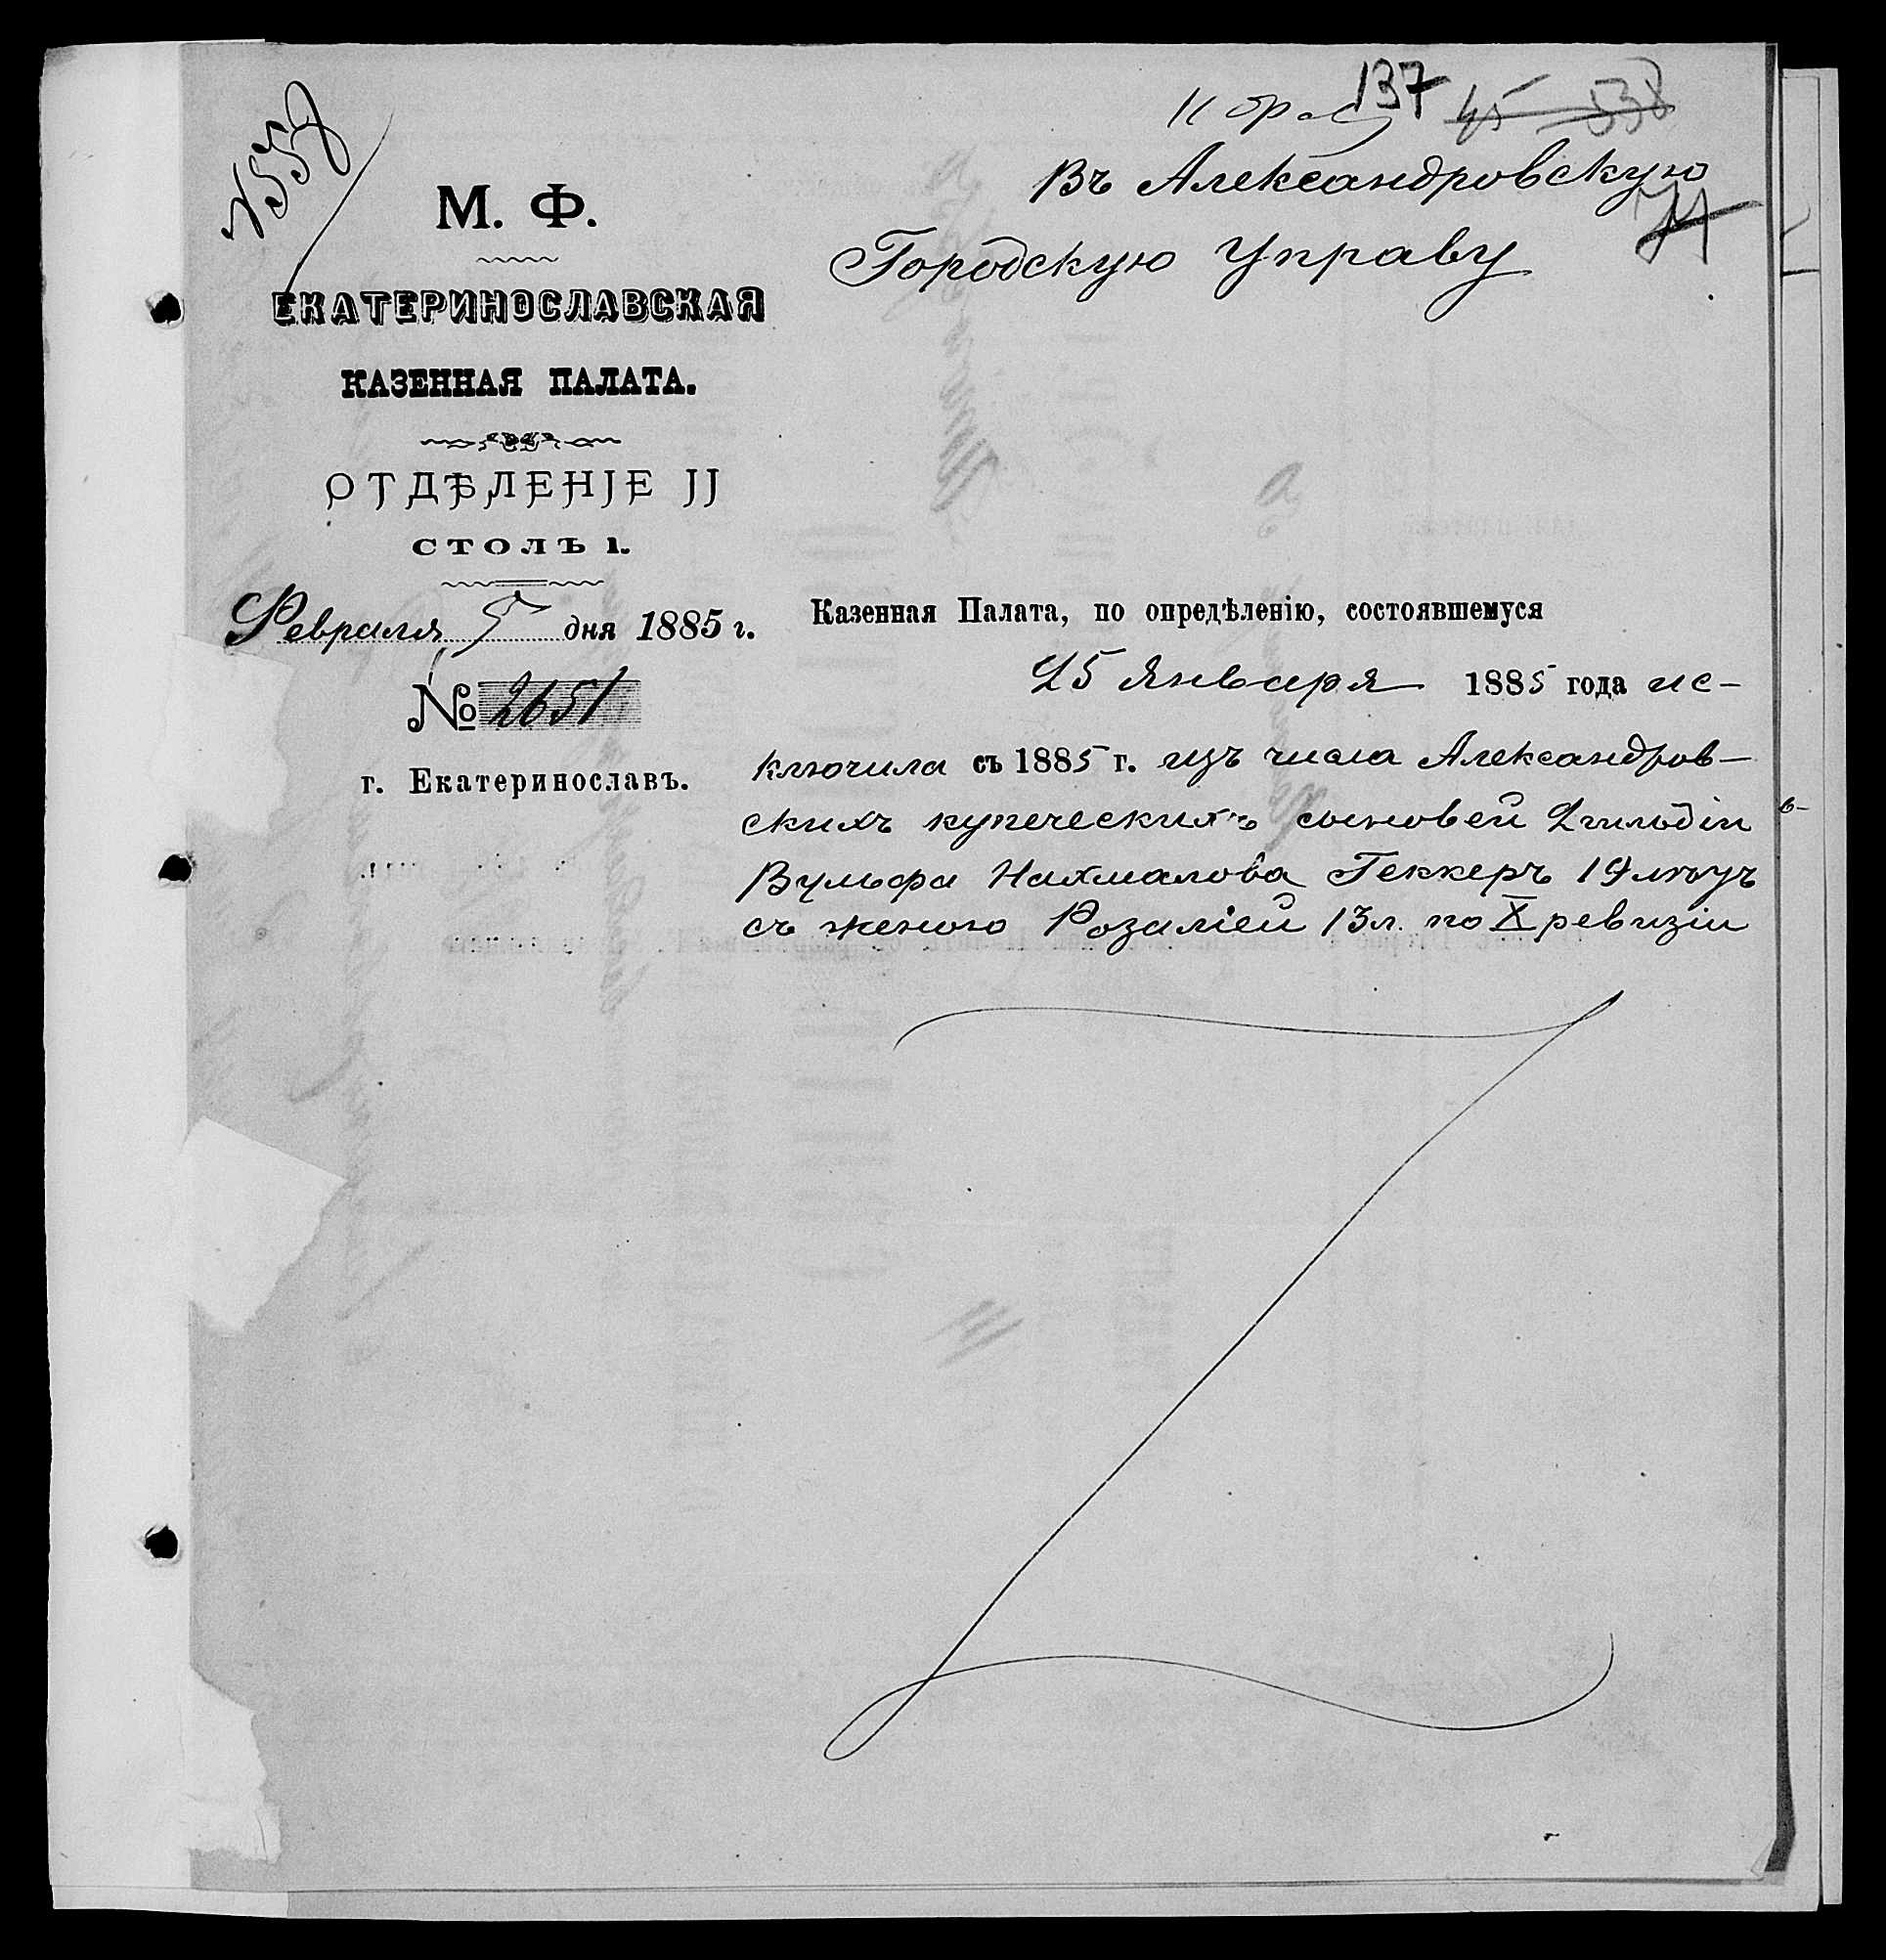 137
45 538
Въ Александровскую
74
Городскую Управу
М. Ф.
ЕКАТЕРИНОСЛАВСКАЯ
КАЗЕННАЯ ПАЛАТА.
ОТДѢЛЕНІЕ II
СТОЛЪ 1.
Февраля 5 дня 1885 г.
№ 2651
г. Екатеринославъ.
Казенная Палата, по опредѣленію, состоявшемуся
25 Января 1885 года ис-
ключила съ 1885 г. изъ числа Александров-
скихъ купеческихъ сыновей 2 гильдіи
Вульфа Нахмалова Геккеръ 19 лѣтъ
съ женою Розаліей 13 л. по X ревизіи